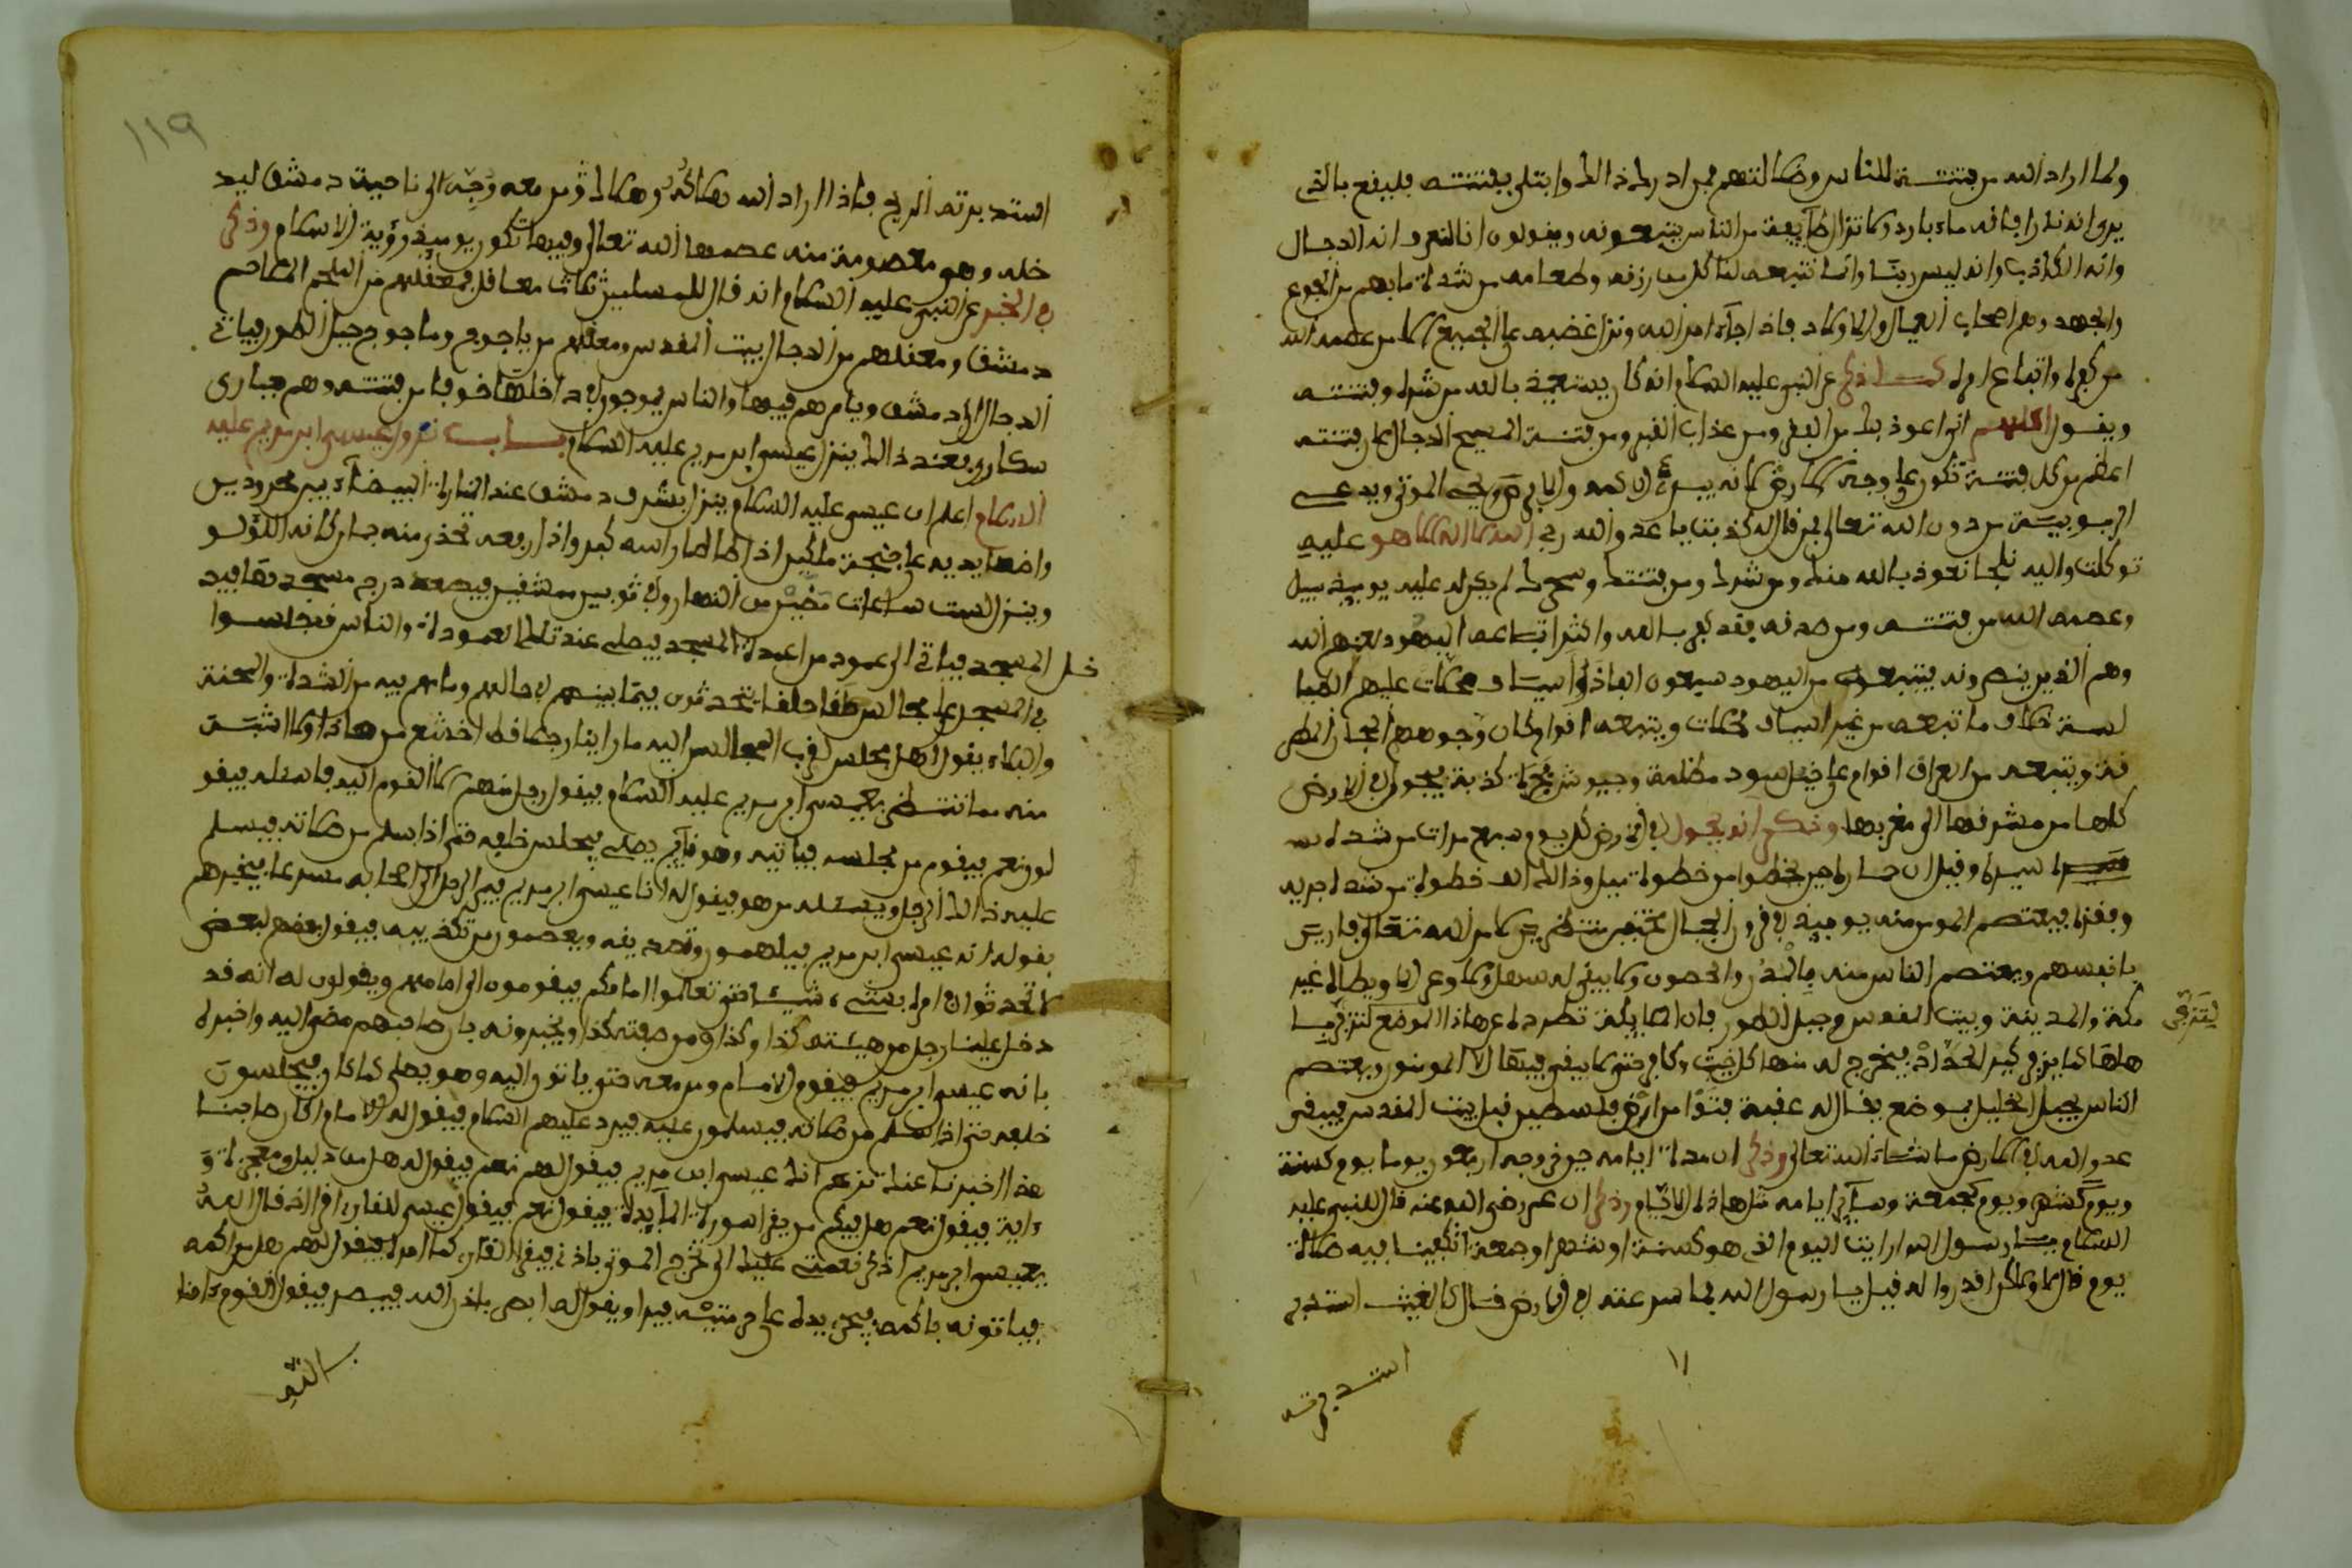 ولما اراد الله من فتنته للناس وضلالتهم فمن ادرك ذالك وابتلي بفتنته فليقع بالتي
يرى انه نارا فانه ماء بارد ولا تزال طآيفة من الناس يتبعونه ويقولون انا لنعرف انه الدجال
وانه الكذاب وانه ليس ربنا وانما نتبعه لناكل من رزقه وطعامه من شدة ما بهم من الجوع
والجهد وهم اصحاب العيال والاولاد فاذا جآء امر الله ونزل غضبه على الجميع الا من عصمه الله
من كفره واتباع امره كما ذكر عن النبي عليه السلام انه كان يستعيذ بالله من شره وفتنته
ويقول اللهم اني اعوذ بك من الفقر ومن عذاب القبر ومن فتنة المسيح الدجال فان فتنته
اعظم من كل فتنة تكون على وجه الارض لانه يبرئ الاكمه والابرص ويحي الموتى ويدعي
الربوبية من دون الله تعالى فمن قال له كذبت يا عدو الله ربي الله لا اله الا هو عليه
توكلت واليه نلجا نعوذ بالله منك ومن شرك ومن فتنتك وسحرك لم يكن له عليه يوميذ سبيل
وعصمه الله من فتنته ومن صدقه فقد كفر بالله واكثر اتباعه اليهود لعنهم الله
وهم الذين ينصرونه يتبعه من اليهود سبعون الفا ذوا اسياف محلات عليهم الطيا
لسة خلاف ما تبعه من غير اسياف محلات ويتبعه اقوام كان وجوههم المجان المطر
قة ويتبعه من العراق اقوام على خيل سود مظلمة وجيوش كذبة يجول في الارض
كلها من مشرقها الى مغربها وذكر انه يجول في الارض كل يوم سبع مرات من شدة
سيره وقيل ان حماره حين يخطوا من خطوة ميل وذالك الف خطوة من شدة جريه
وقفزه فيعتصم المومن منه يوميذ في قرون الجبال مختفين منتظرين لامر الله تعالى فارين
بانفسهم ويعتصم الناس منه بالمدن والحصون ولا يبقى له سهل ولا وعر الا ويطاه غير
مكة والمدينة وبيت المقدس وجبل الطور فان الملايكة تطرده عن هاذا الموضع لتزفي
لتزفي
هلها كما يزفي كير الحداد فيخرج له منها كل خبيث وكافر حتى لا يبقى فيها الا المومنون ويعتصم
الناس بجبل الخليل بموضع يقال له عقبة من ارض فلسطين قبل بيت المقدس فيبقى
عدو الله في الارض ما شآء الله تعالى وذكر ان مدة ايامه جوفى وجه اربعون يوما يوم كسنة
ويوم كشهر ويوم كجمعة وسآير ايامه مثل هاذه الايام وذكر ان عمر رضي الله عنه قال للنبي عليه
السلام يا رسول الله ارايت اليوم الذي هو كسنة او شهر او جمعة اتكفينا فيه صلاة
يوم قال لا ولاكن اقدروا له قيل يا رسول الله فما سرعته في الارض قال كالغيث استدبر
استدبرته
١١٩
استدبرته الريح فاذا اراد الله هلاكه وهلاك من معه وجه الى ناحية دمشق ليد
خله وهو معصومة منه عصمها الله تعالى وفيها تكون يوميذ رؤية الاسلام وذكر
في الخبر عن النبي عليه السلام انه قال للمسلمين ثلاث معاقل فمعقلهم من الملحم الملاحم
دمشق ومعقلهم من الدجال بيت المقدس ومعقلهم من ياجوج وماجوج جبل الطور فياتي
الدجال الى دمشق ويامرهم فيها والناس يموجون في داخلها خوفا من فتنته وهم حيارى
سكارى فعند ذالك ينزل عيسى ابن مريم عليه السلام باب نزول عيسى ابن مريم عليه
السلام اعلم ان عيسى عليه السلام ينزل بشرق دمشق عند المنارة البيضآء بين مهرودين
واضعا يديه على اجنحة ملكين اذا طاطا راسه قطر واذا رفعه تحدر منه جمان كانه اللؤلو
وينزل لست ساعات مضين من النهار وفي ثوبين ممشقين فيصعد درج مسجد فيد
خل المسجد فياتي الى عمود من اعمدة المسجد فيصلي عند تلك العمودة والناس قد جلسوا
في المسجد على مجالس حلقا حلقا يتحدثون فيما بينهم في حالهم وما هم فيه من الشدة والمحنة
والبلآء يقول اهل مجلس لاقرب المجالس اليه ما راينا رجلا قط اخشع من هاذا ولا اثبت
منه مما ننتظر بعيسى ابن مريم عليه السلام فيقول رجل منهم لا القوم اليه فاسئله فيقو
لون نعم فيقوم من مجلسه فياتيه وهو قآيم يصلي فيجلس خلفه حتى اذا سلم من صلاته فيسلم
عليه ذالك الرجل ويسئله من هو فيقول له انا عيسى ابن مريم فيمر الرجل الى اصحابه مسرعا فيخبرهم
بقوله انه عيسى ابن مريم فيلهمون تصديقه ويعصمون من تكذيبه فيقول بعضهم لبعض
لا تحدثوا في امره بشيء شيئا حتى تعلموا امامكم فيقومون الى امامهم ويقولون له انه قد
دخل علينا رجل من هيئته كذا وكذا ومن صفته كذا ويخبرونه بان صاحبهم مضى اليه واخبره
بانه عيسى ابن مريم فيقوم الامام ومن معه حتى ياتوا اليه وهو يصلي كما كان فيجلسون
خلفه حتى اذا سلم من صلاته فيسلمون عليه فيرد عليهم السلام فيقول له الامام ان كان صاحبنا
هذا اخبرنا عنك تزعم انك عيسى ابن مريم فيقول لهم نعم فيقول له هل من دليل ومعجزة و
ءاية فيقول نعم هل فيكم من يقرا سورة المآيدة فيقول نعم فيقول عيسى للقارئ اقرا اذ قال الله
يعيسى ابن مريم اذكر نعمتي عليك الى تخرج الموتى باذني فيقرا القارئ كما امره فيقول لهم هل من اكمه
فياتونه باكمه فيجري يده على فيبرا ويقول له ابصر باذن الله فيبصر فيقول القوم ءامنا